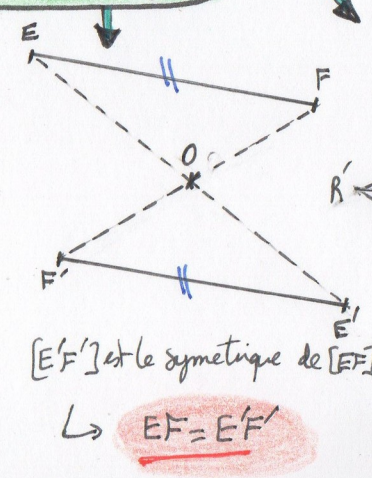 E
F
O
R'
F'
E'
[E'F'] est le symetrique de [EF]
↳ EF = E'F'